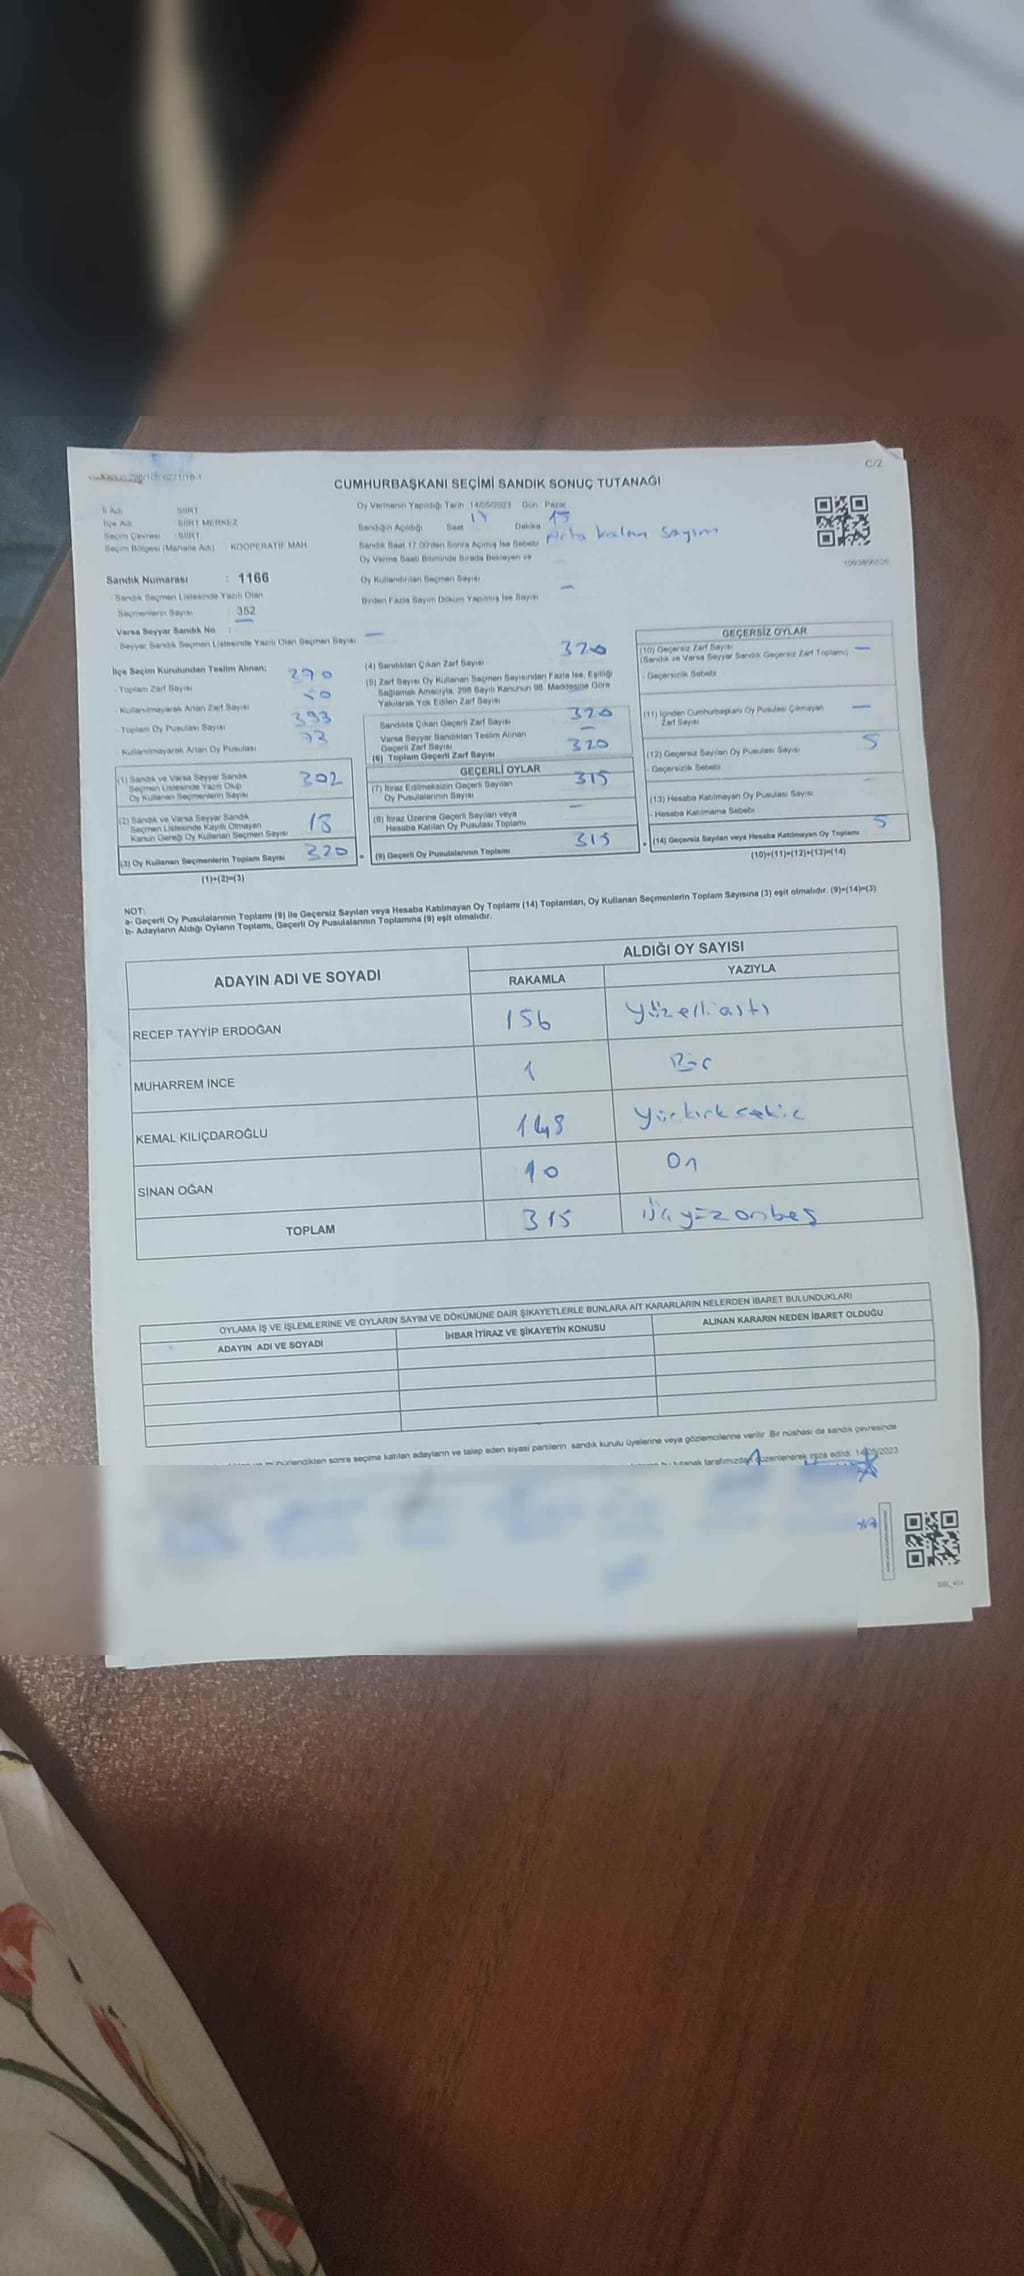 C/2
CUMHURBAŞKANI SEÇİMİ SANDIK SONUÇ TUTANAĞI
İl Adı : SİİRT
İlçe Adı : SİİRT MERKEZ
Seçim Çevresi : SİİRT
Seçim Bölgesi (Mahalle Adı) : KOOPERATİF MAH.
Oy Vermenin Yapıldığı Tarih 14/05/2023 Gün Pazar
Sandığın Açıldığı Saat 17 Dakika 15
Sandık Saat 17.00'dan Sonra Açılmış İse Sebebi Arta kalan sayım
Oy Verme Saati Bitiminde Sırada Bekleyen ve
Oy Kullandırılan Seçmen Sayısı
Birden Fazla Sayım Döküm Yapılmış İse Sayısı —
Sandık Numarası : 1166
Sandık Seçmen Listesinde Yazılı Olan
Seçmenlerin Sayısı : 352
Varsa Seyyar Sandık No :
Seyyar Sandık Seçmen Listesinde Yazılı Olan Seçmen Sayısı : —
İlçe Seçim Kurulundan Teslim Alınan;
Toplam Zarf Sayısı
Kullanılmayarak Artan Zarf Sayısı
Toplam Oy Pusulası Sayısı 393
Kullanılmayarak Artan Oy Pusulası 73
(1) Sandık ve Varsa Seyyar Sandık
Seçmen Listesinde Yazılı Olup
Oy Kullanan Seçmenlerin Sayısı 302
(2) Sandık ve Varsa Seyyar Sandık
Seçmen Listesinde Kayıtlı Olmayan
Kanun Gereği Oy Kullanan Seçmen Sayısı 18
(3) Oy Kullanan Seçmenlerin Toplam Sayısı 320
(1)+(2)=(3)
(4) Sandıktan Çıkan Zarf Sayısı 320
(5) Zarf Sayısı Oy Kullanan Seçmen Sayısından Fazla İse, Eşitliği
Sağlamak Amacıyla, 298 Sayılı Kanunun 98. Maddesine Göre
Yakılarak Yok Edilen Zarf Sayısı
Sandıkta Çıkan Geçerli Zarf Sayısı 320
Varsa Seyyar Sandıktan Teslim Alınan
Geçerli Zarf Sayısı —
(6) Toplam Geçerli Zarf Sayısı 320
GEÇERLİ OYLAR
(7) İtiraz Edilmeksizin Geçerli Sayılan
Oy Pusulalarının Sayısı 315
(8) İtiraz Üzerine Geçerli Sayılan veya
Hesaba Katılan Oy Pusulası Toplamı —
(9) Geçerli Oy Pusulalarının Toplamı 315
GEÇERSİZ OYLAR
(10) Geçersiz Zarf Sayısı
(Sandık ve Varsa Seyyar Sandık Geçersiz Zarf Toplamı) —
Geçersizlik Sebebi
(11) İçinden Cumhurbaşkanı Oy Pusulası Çıkmayan
Zarf Sayısı —
(12) Geçersiz Sayılan Oy Pusulası Sayısı 5
Geçersizlik Sebebi
(13) Hesaba Katılmayan Oy Pusulası Sayısı —
Hesaba Katılmama Sebebi
(14) Geçersiz Sayılan veya Hesaba Katılmayan Oy Toplamı 5
(10)+(11)+(12)+(13)=(14)
NOT:
a- Geçerli Oy Pusulalarının Toplamı (9) ile Geçersiz Sayılan veya Hesaba Katılmayan Oy Toplamı (14) Toplamları, Oy Kullanan Seçmenlerin Toplam Sayısına (3) eşit olmalıdır. (9)+(14)=(3)
b- Adayların Aldığı Oyların Toplamı, Geçerli Oy Pusulalarının Toplamına (9) eşit olmalıdır.
ADAYIN ADI VE SOYADI ALDIĞI OY SAYISI
RAKAMLA YAZIYLA
RECEP TAYYİP ERDOĞAN 156 yüzelli altı
MUHARREM İNCE 1 Bir
KEMAL KILIÇDAROĞLU 148 yüzkırksekiz
SİNAN OĞAN 10 On
TOPLAM 315 üçyüzonbeş
OYLAMA İŞ VE İŞLEMLERİNE VE OYLARIN SAYIM VE DÖKÜMÜNE DAİR ŞİKAYETLERLE BUNLARA AİT KARARLARIN NELERDEN İBARET BULUNDUKLARI
ADAYIN ADI VE SOYADI İHBAR İTİRAZ VE ŞİKAYETİN KONUSU ALINAN KARARIN NEDEN İBARET OLDUĞU
mühürlendikten sonra seçime katılan adayların ve talep eden siyasi partilerin sandık kurulu üyelerine veya gözlemcilerine verilir. Bir nüshası da sandık çevresinde
bu tutanak tarafımızdan düzenlenerek imza edildi. 14/05/2023